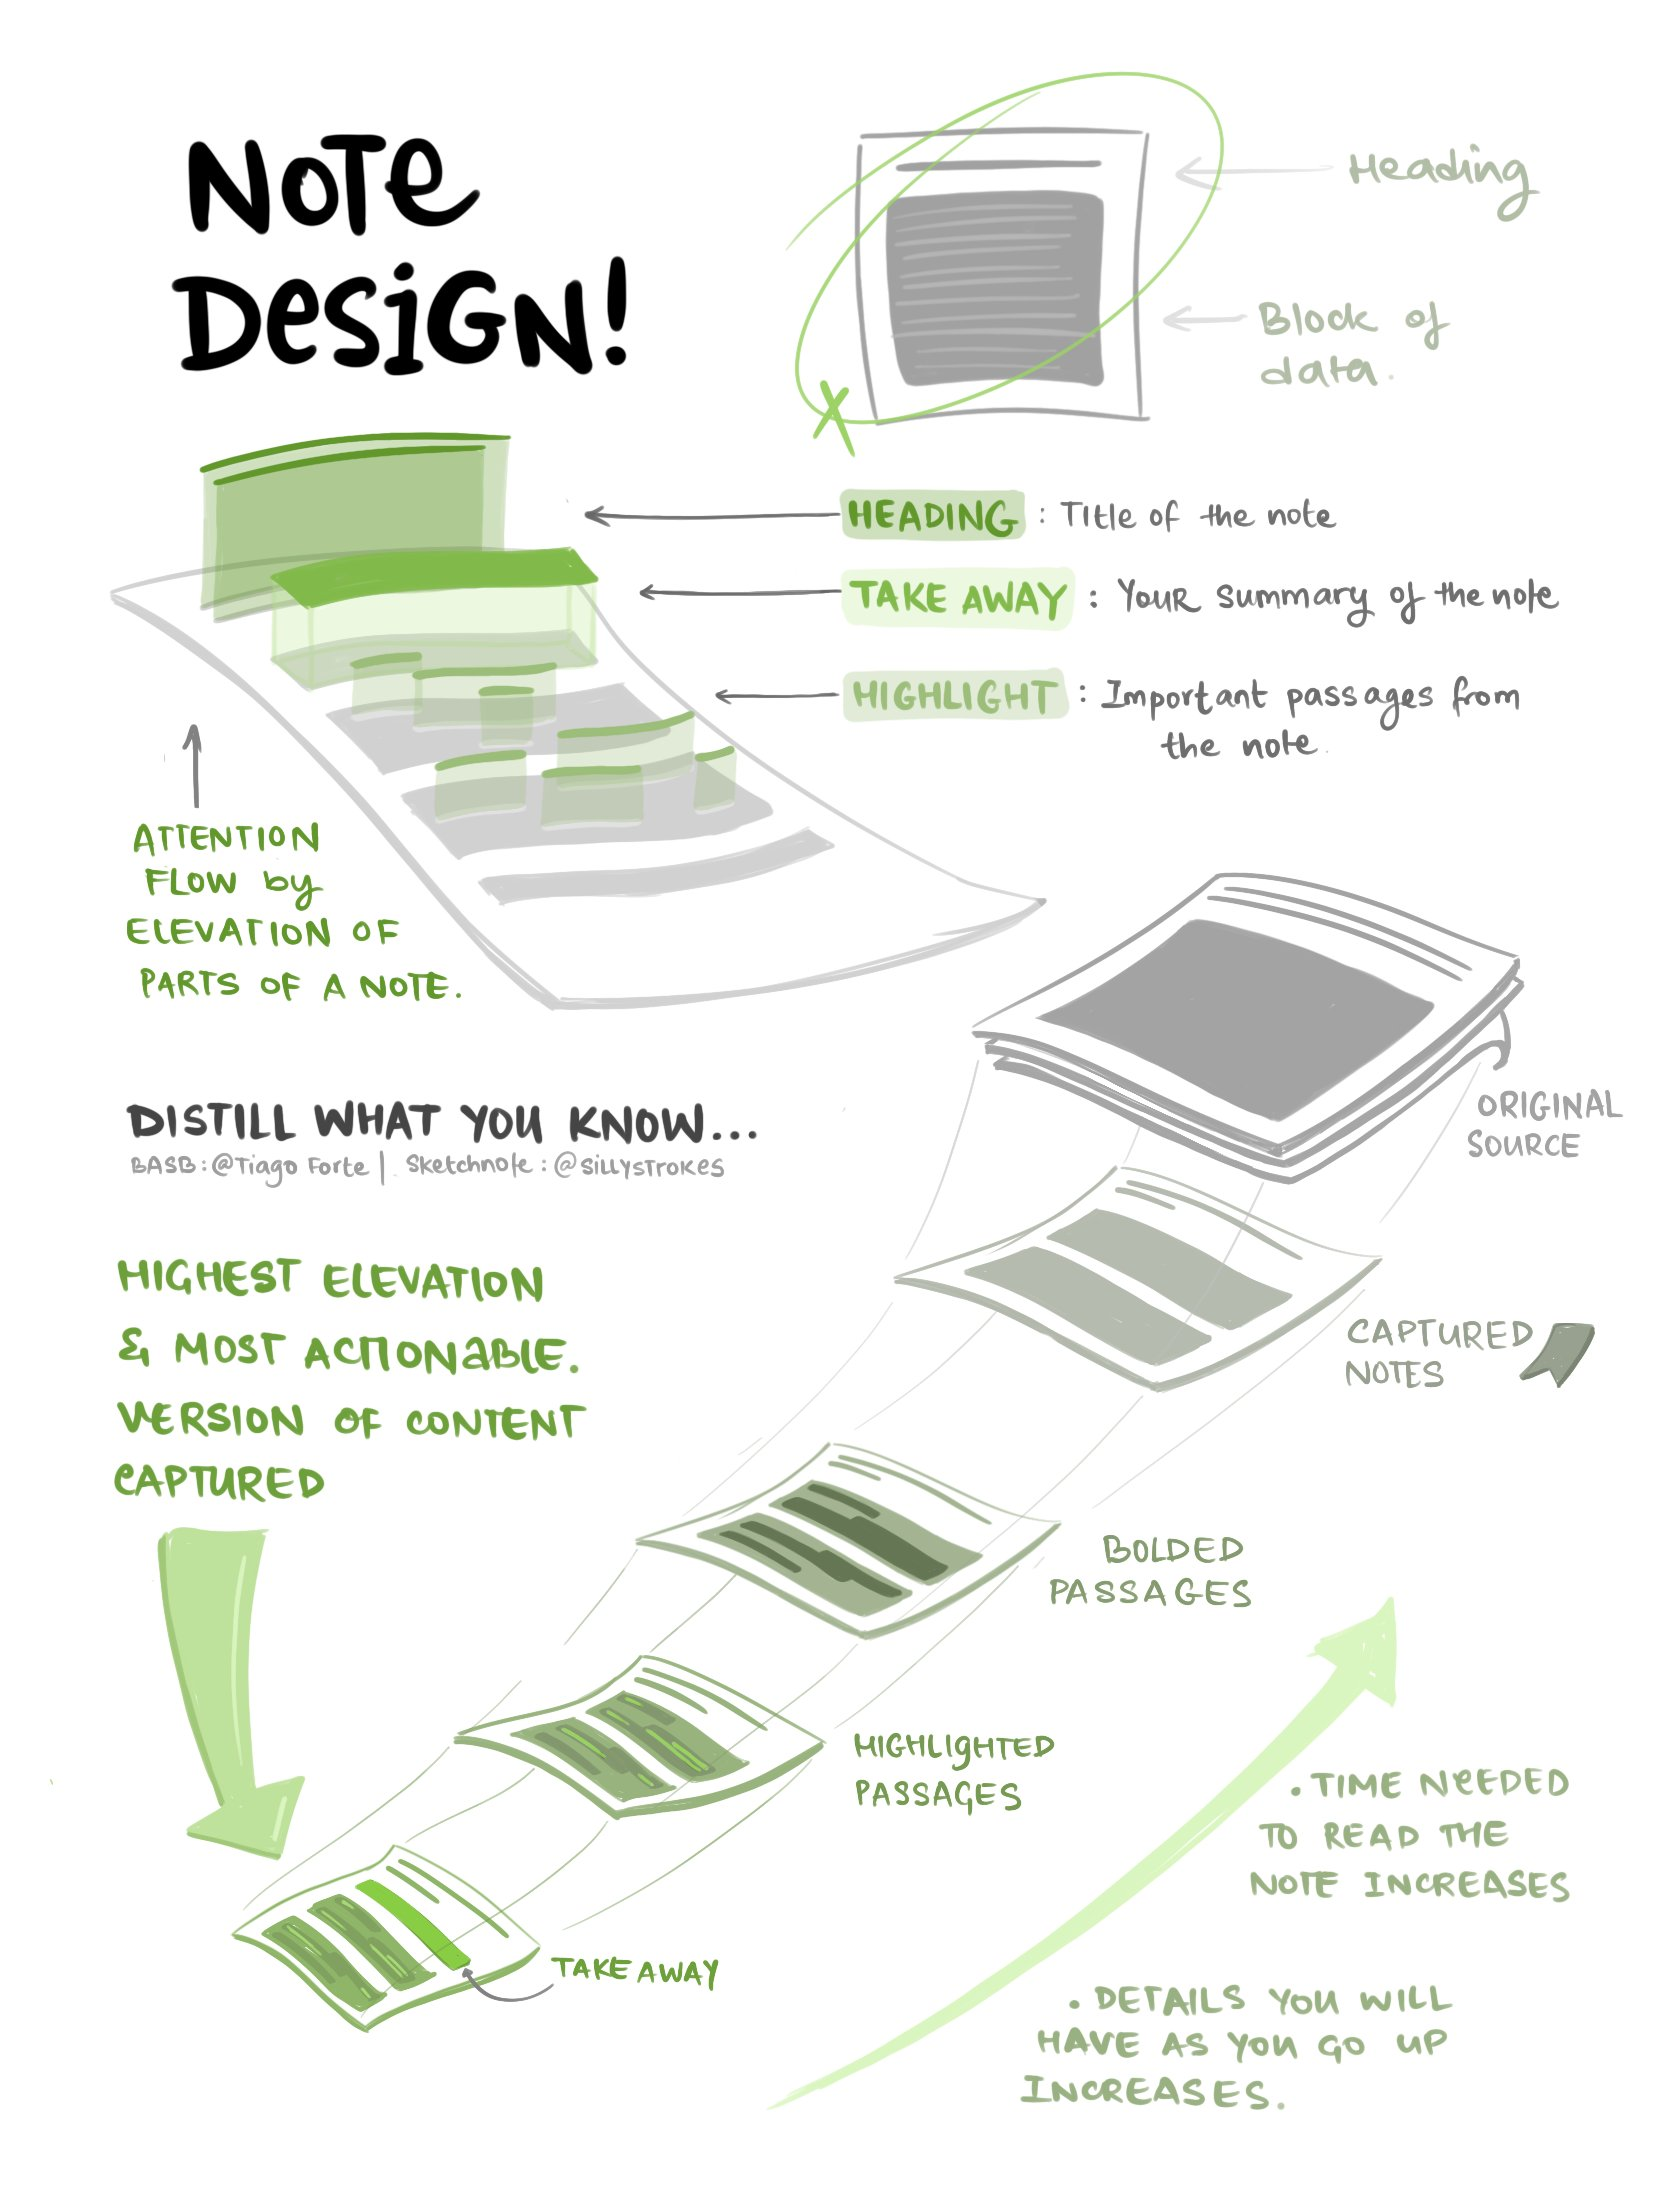 NOTE
DESIGN!
Heading
Block of
data.
HEADING : Title of the note
TAKE AWAY : YOUR Summary of the note
HIGHLIGHT : Important passages from
the note.
ATTENTION
FLOW by
ELEVATION OF
PARTS OF A NOTE.
ORIGINAL
SOURCE
DISTILL WHAT YOU KNOW...
BASB: @Tiago Forte | Sketchnote: @sillystrokes
HIGHEST ELEVATION
& MOST ACTIONABLE.
VERSION OF CONTENT
CAPTURED
CAPTURED
NOTES
BOLDED
PASSAGES
HIGHLIGHTED
PASSAGES
TAKE AWAY
. TIME NEEDED
TO READ THE
NOTE INCREASES
. DETAILS YOU WILL
HAVE AS YOU GO UP
INCREASES.